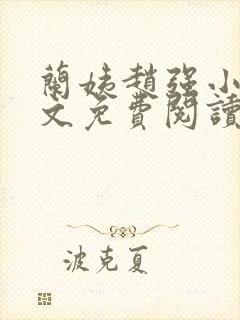 蘭姨趙強小
文免費閱讀
波克夏